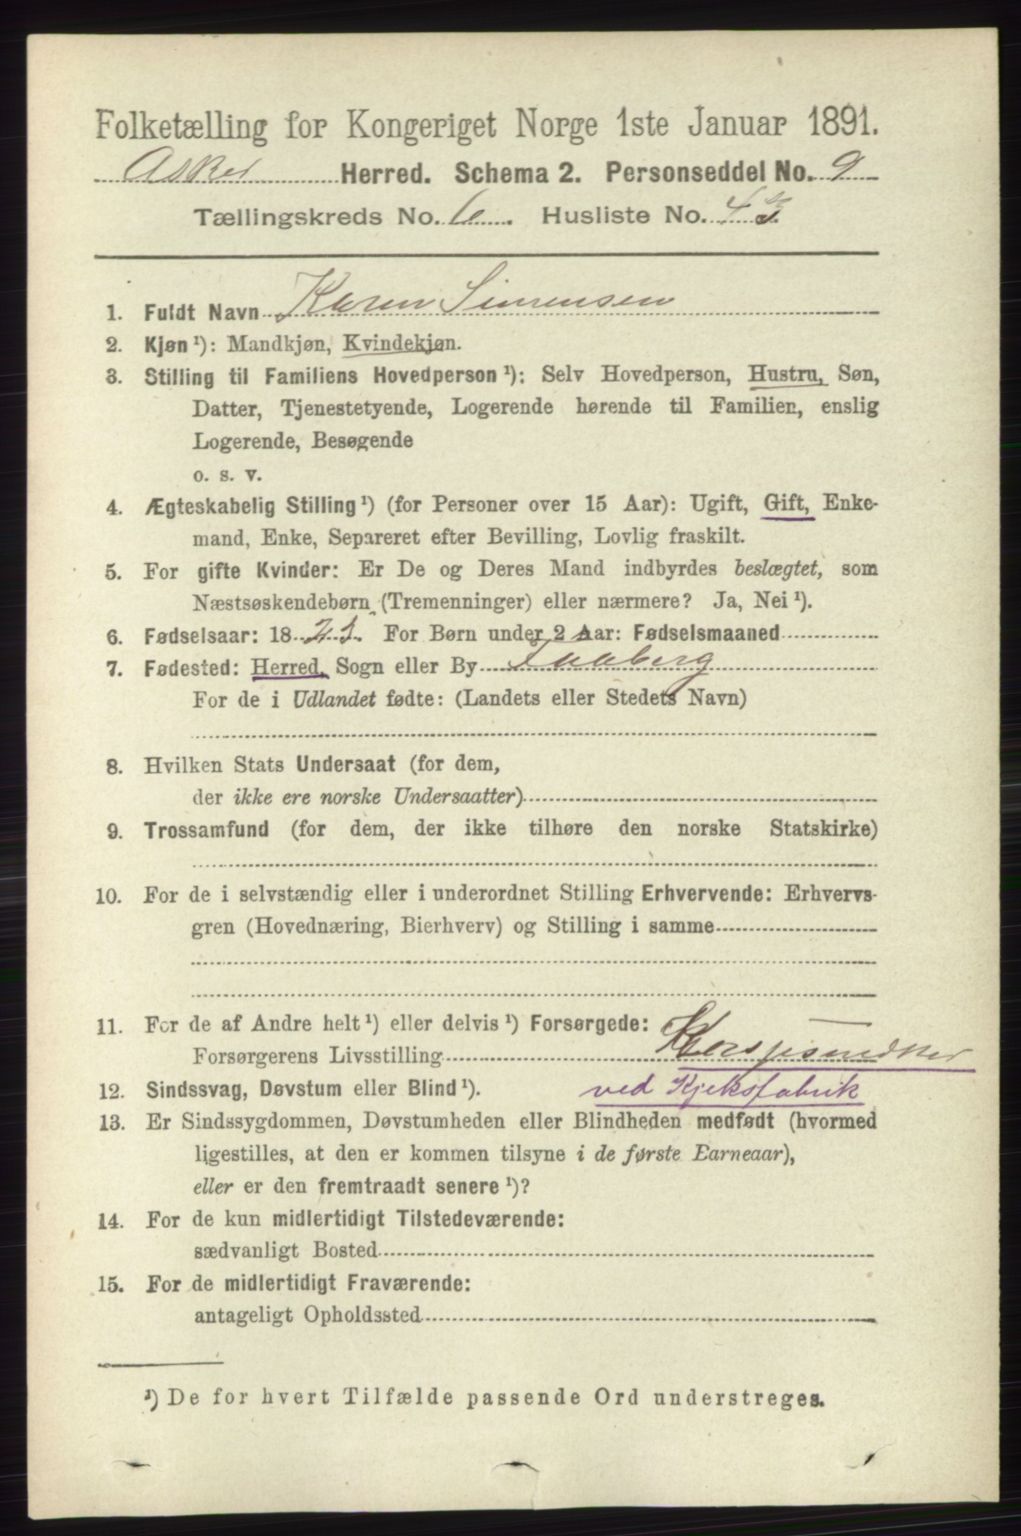 Folketælling for Kongeriget Norge 1ste Januar 1891.
Asker Herred. Schema 2. Personseddel No. 9
Tællingskreds No. 6. Husliste No. 43
1. Fuldt Navn Karen Simensen
2. Kjøn ¹): Mandkjøn, Kvindekjøn.
3. Stilling til Familiens Hovedperson ¹): Selv Hovedperson, Hustru, Søn,
Datter, Tjenestetyende, Logerende hørende til Familien, enslig
Logerende, Besøgende
o. s. v.
4. Ægteskabelig Stilling ¹) (for Personer over 15 Aar): Ugift, Gift, Enke-
mand, Enke, Separeret efter Bevilling, Lovlig fraskilt.
5. For gifte Kvinder: Er De og Deres Mand indbyrdes beslægtet, som
Næstsøskendebørn (Tremenninger) eller nærmere? Ja, Nei ¹).
6. Fødselsaar: 18 For Børn under 2 Aar: Fødselsmaaned
7. Fødested: Herred, Sogn eller By Faaberg
For de i Udlandet fødte: (Landets eller Stedets Navn)
8. Hvilken Stats Undersaat (for dem,
der ikke ere norske Undersaatter)
9. Trossamfund (for dem, der ikke tilhøre den norske Statskirke)
10. For de i selvstændig eller i underordnet Stilling Erhvervende: Erhvervs-
gren (Hovednæring, Bierhverv) og Stilling i samme
11. For de af Andre helt ¹) eller delvis ¹) Forsørgede:
Forsørgerens Livsstilling
12. Sindssvag, Døvstum eller Blind ¹). ved Kjeksfabrik
13. Er Sindssygdommen, Døvstumheden eller Blindheden medfødt (hvormed
ligestilles, at den er kommen tilsyne i de første Barneaar),
eller er den fremtraadt senere ¹)?
14. For de kun midlertidigt Tilstedeværende:
sædvanligt Bosted
15. For de midlertidigt Fraværende:
antageligt Opholdssted
¹) De for hvert Tilfælde passende Ord understreges.